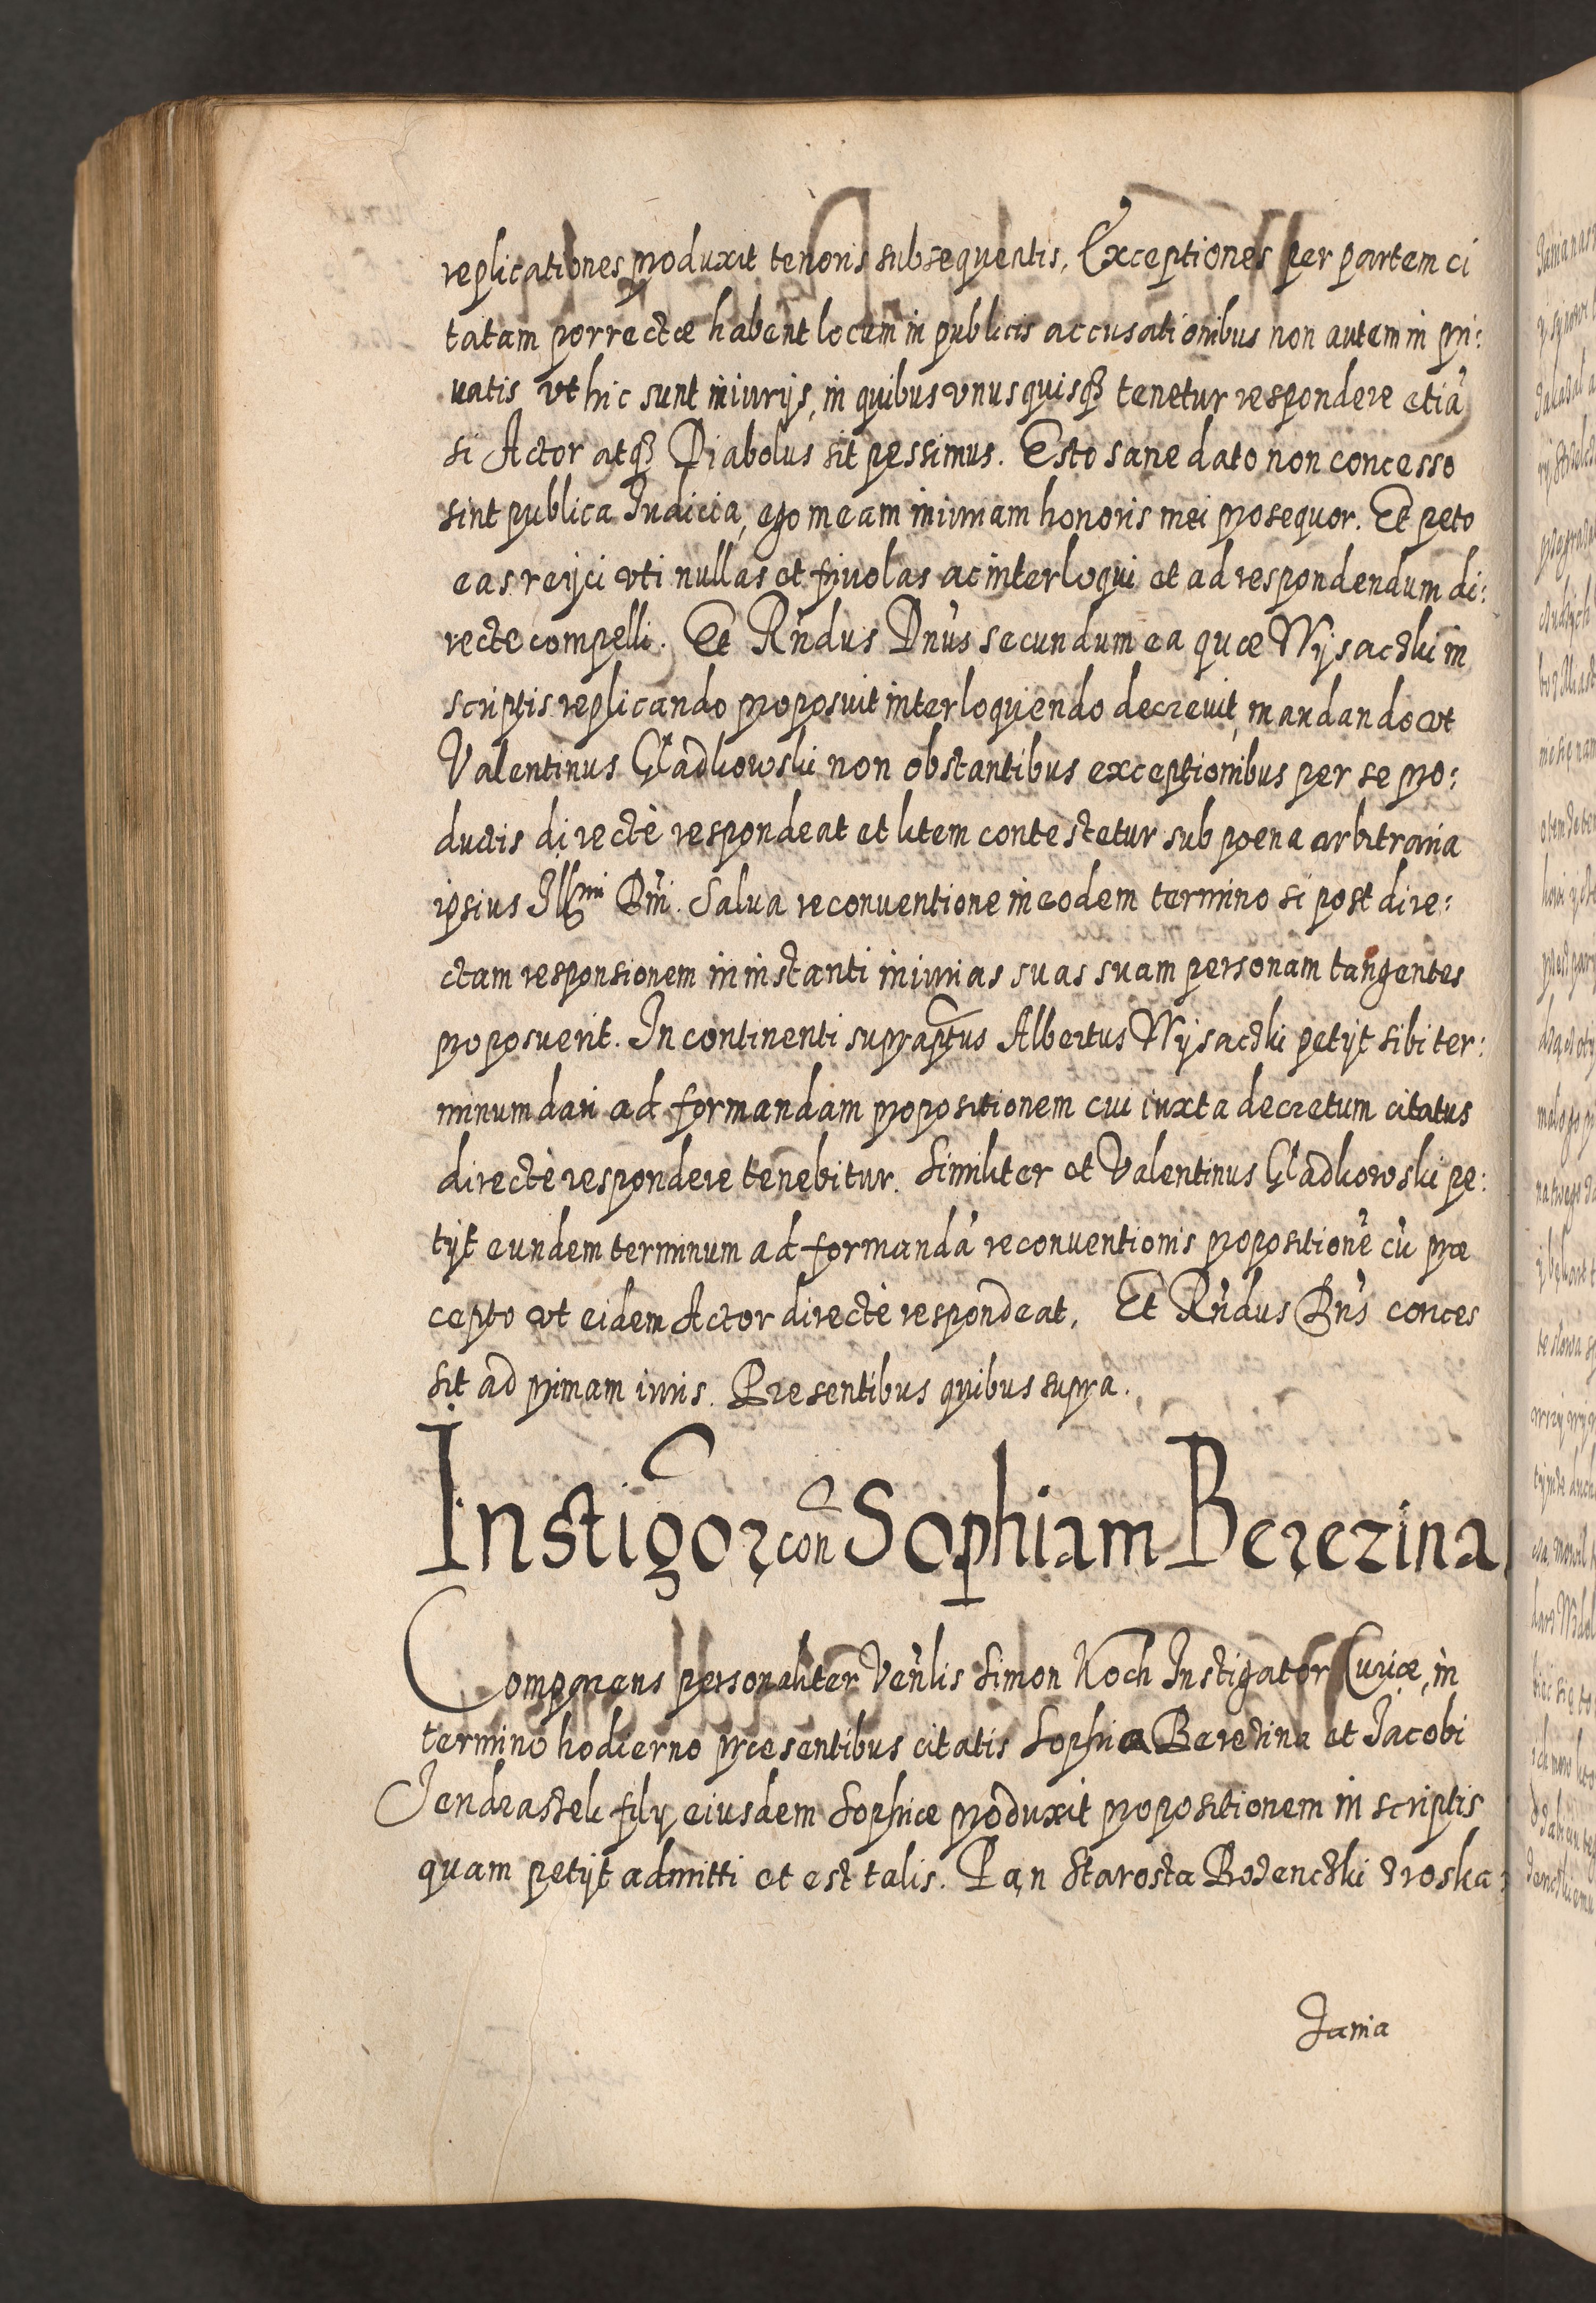 replicationes produxit tenoris subsequentis. Exceptiones per partem ci
tatam porrectæ habent locum in publicis accusationibus non autem in pri:
uatis vt hic sunt iniurijs, in quibus vnusquisqȝ tenetur respondere etiã
si Actor atqȝ Diabolus sit pessimus. Esto sane dato non concesso
sint publica Iudicia, ego meam iniuriam honoris mei prosequor. Et peto
eas reijci vti nullas et friuolas ac interloqui et ad respondendum di:
recte compelli. Et Rñdus Dñus secundum ea quæ Wysaczki in
scriptis replicando proposuit interloquendo decreuit, mandando vt
Valentinus Gładkowski non obstantibus exceptionibus per se pro:
ductis directè respondeat et litem contestetur sub poena arbitraria
ipsius Illmi Dñi. Salua reconuentione in eodem termino si post dire:
ctam responsionem in instanti iniurias suas suam personam tangentes
proposuerit. In continenti supraptus Albertus Wysaczki petijt sibi ter:
minum dari ad formandam propositionem cui iuxta decretum citatus
directè respondere tenebitur. Similiter et Valentinus Gładkowski pe:
tijt eundem terminum ad formandã reconuentionis propositionẽ cũ præ
cepto vt eidem Actor directè respondeat. Et Rñdus Dñs conces
sit ad primam iuris. Præsentibus quibus supra.
Instigor con Sophiam Berezina
Comparens personaliter Venlis Simon Koch Instigator Curiæ, in
termino hodierno præsentibus citatis Sophia Berezina et Jacobi
Jendrastek fily eiusdem Sophiæ produxit propositionem in scriptis
quam petijt admitti et est talis. Pan Starosta Bodzenczki zroska:
zania